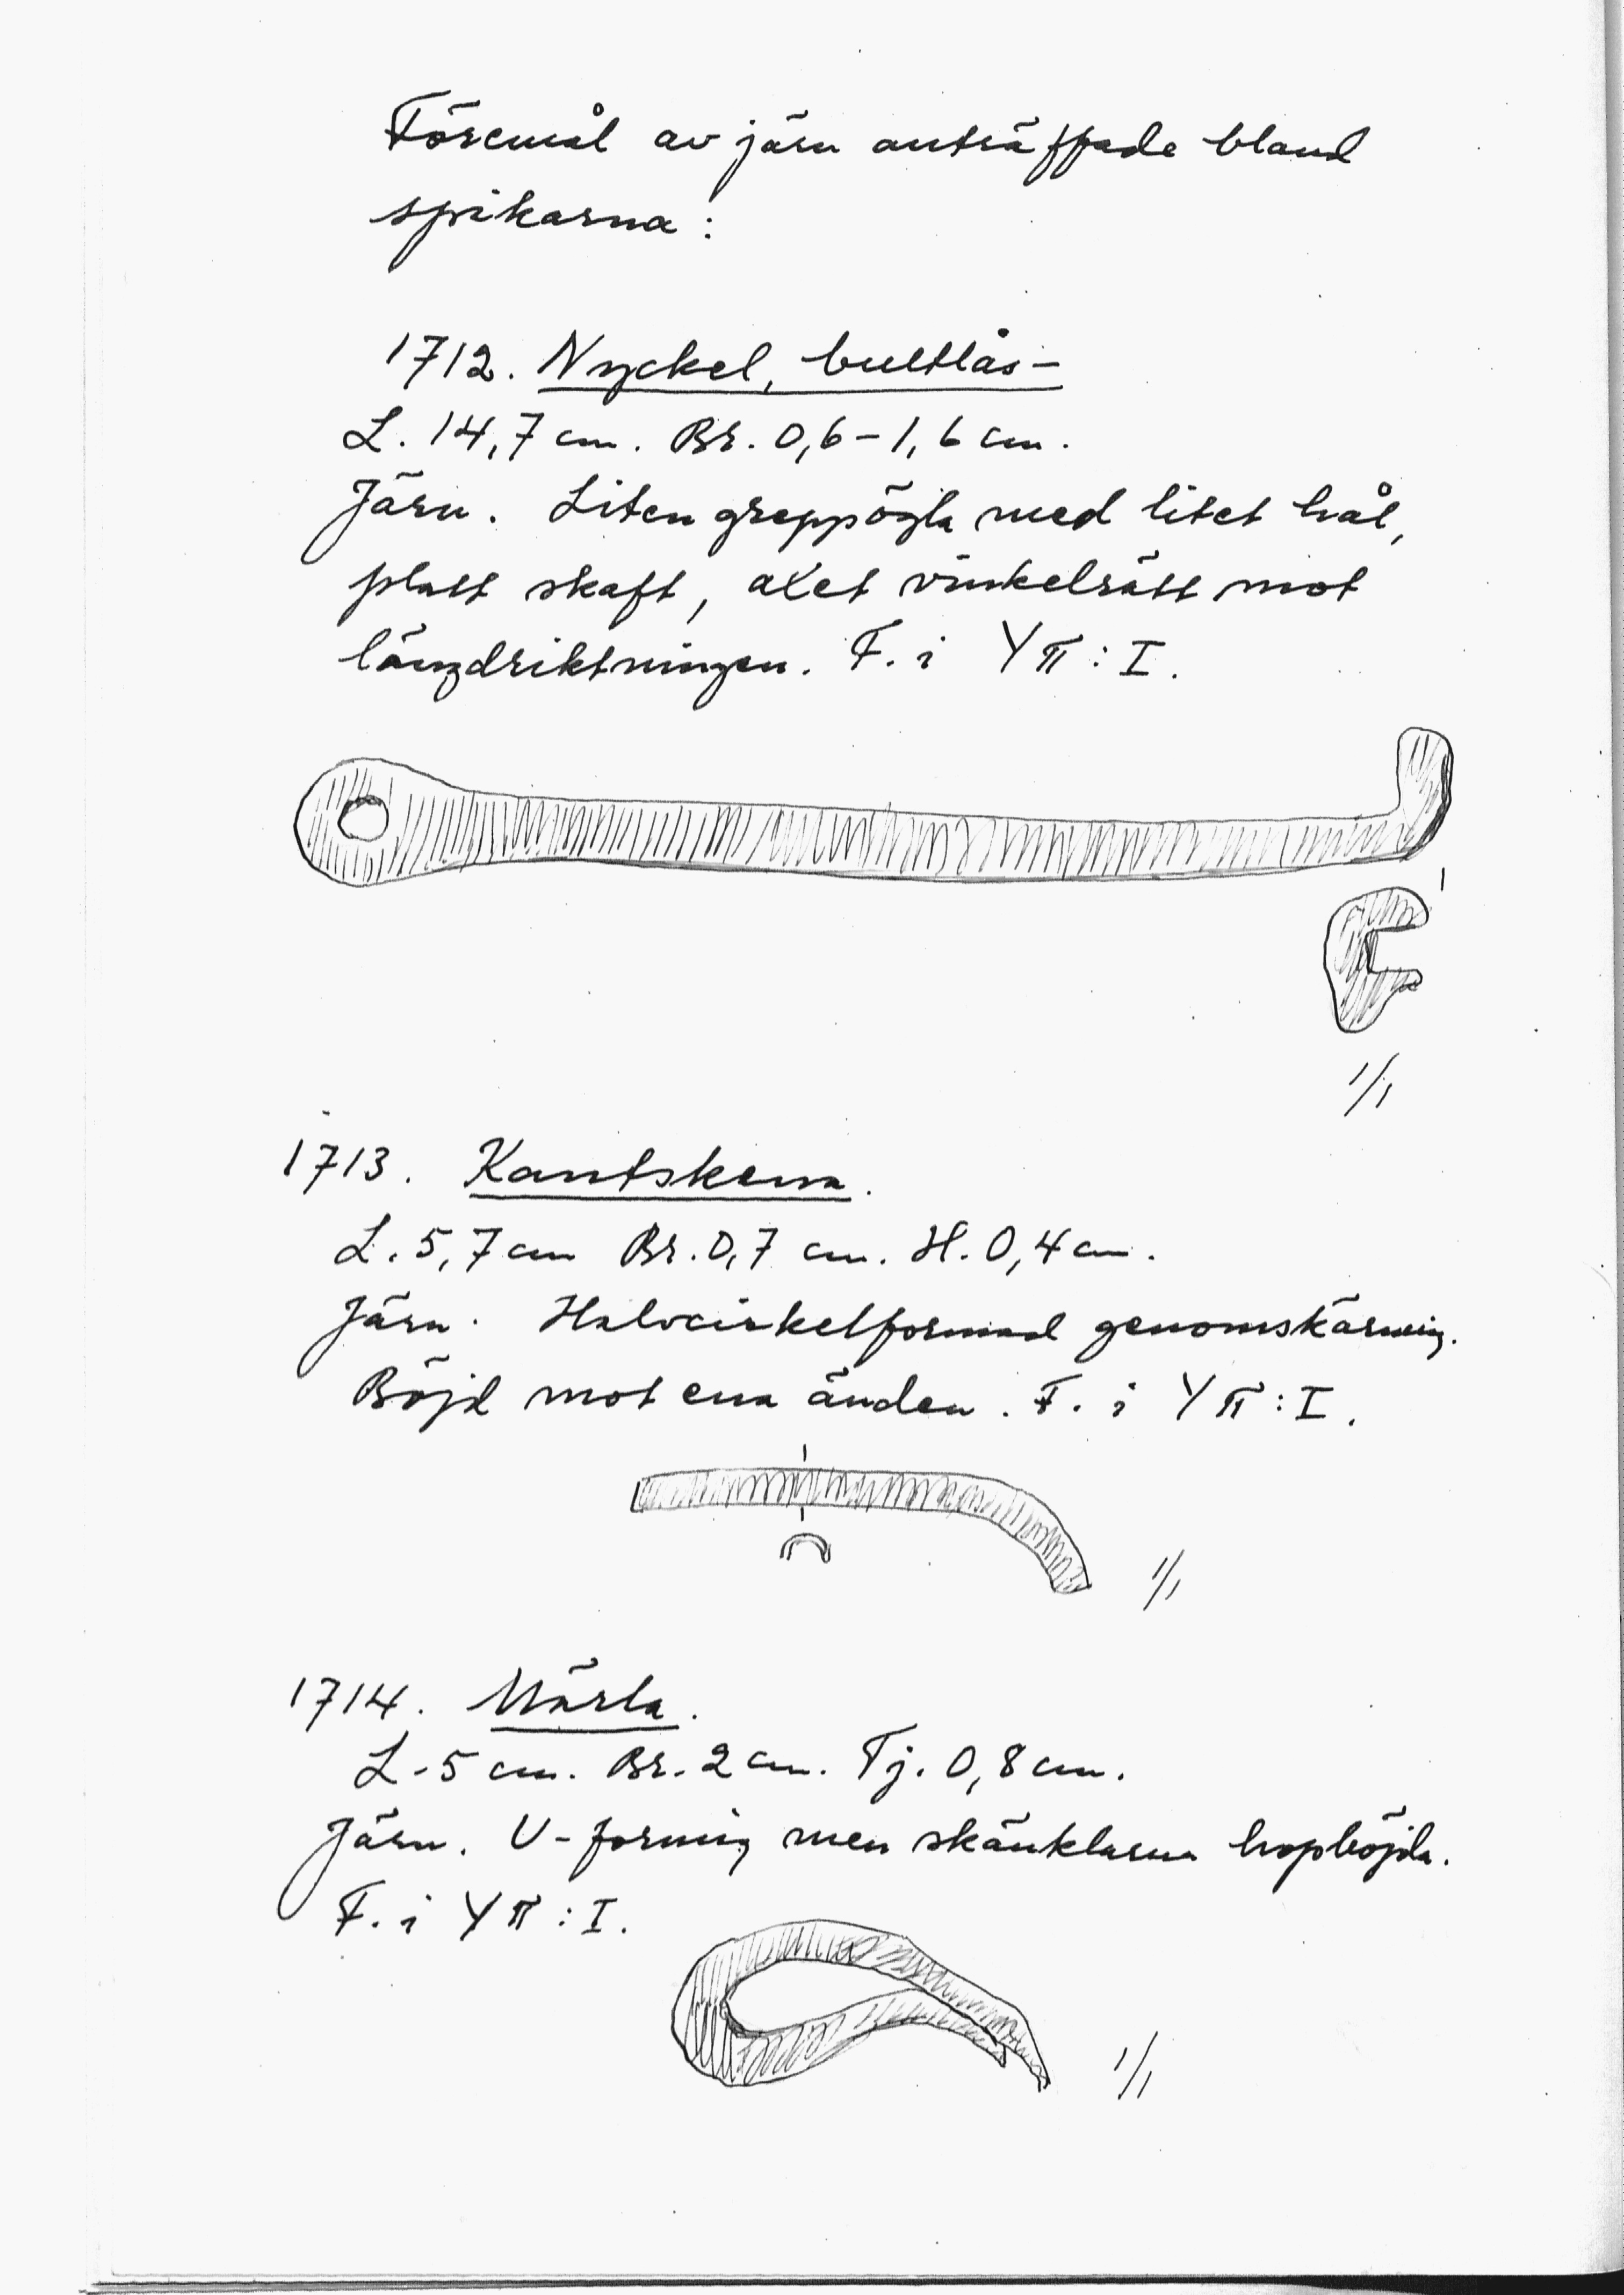 Föremål av järn anträffade bland
spikarna:
1712. Nyckel, bultlås-
L. 14,7 cm. Br. 0,6-1,6 cm.
Järn. Liten greppögla med litet hål,
platt skaft, axet vinkelrätt mot
längdriktningen. F. i Yπ:I.
1/1
1713. Kantskena.
L. 5,7 cm Br. 0,7 cm. H. 0,4 cm.
Järn. Halvcirkelformad genomskärning.
Böjd mot ena änden. F. i Yπ:I.
1/1
1714. Märla.
L. 5 cm. Br. 2 cm. Tj. 0,8 cm.
Järn. U-formig men skänklarna hopböjda.
F. i Yπ:I.
1/1